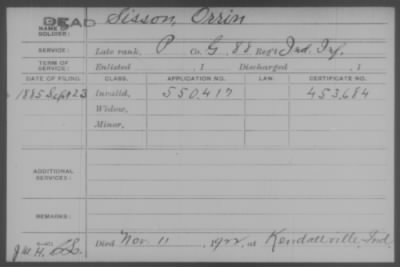 DEAD
NAME OF SOLDIER: Sisson, Orrin
SERVICE: Late rank, P Co. G, 88 Reg't Ind. Inf.
TERM OF SERVICE: Enlisted , 1 Discharged , 1
DATE OF FILING. CLASS. APPLICATION NO. LAW. CERTIFICATE NO.
1885 Sept 23 Invalid, 550.417 453,684
Widow,
Minor,
ADDITIONAL SERVICES:
REMARKS:
Died Nov. 11 1922, at Kendallville, Ind.